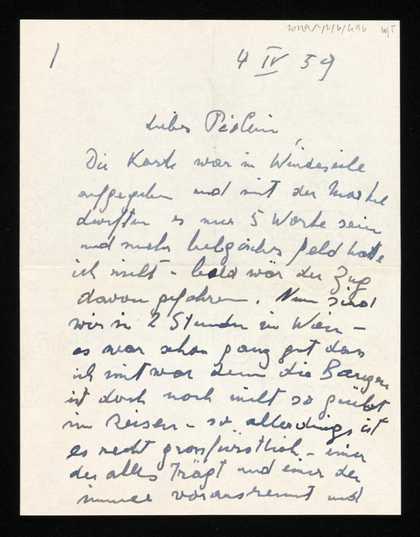 1
4 IV 39
Liebes Peolein,
Die Karte war in Windeseile
aufgegeben und mit der Marke
durften es nur 5 Worte sein
und mehr belgisches Geld hatte
ich nicht - bald wär der Zug
davon gefahren. Nun sind
wir in 2 Stunden in Wien -
es war schon ganz gut dass
ich mit war denn die
ist doch noch nicht so geübt
im Reisen - so allerdings ist
es recht grossfürstlich - einer
der alles trägt und einer der
immer vorausrennt und